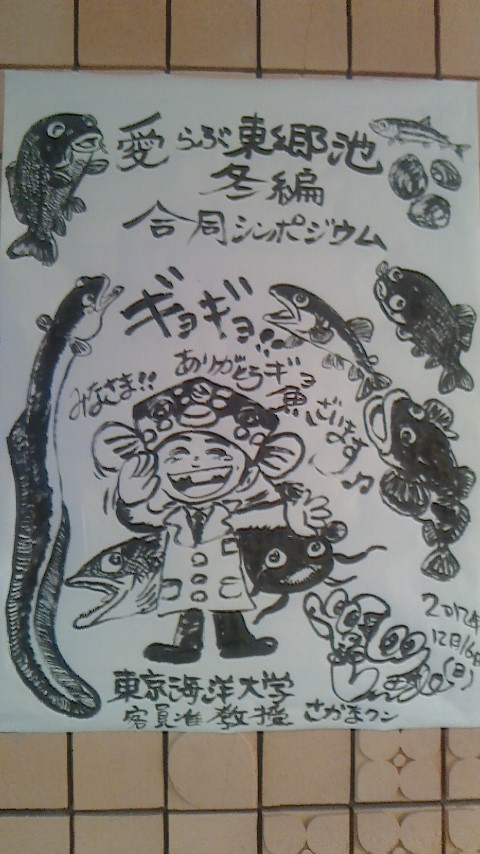 愛らぶ東郷池
冬編
合同シンポジウム
ギョギョ!!
みなさま!!
ありがとうギョ
魚ざいます♪
2012年
12月16日
(日)
東京海洋大学
客員准教授 さかなクン